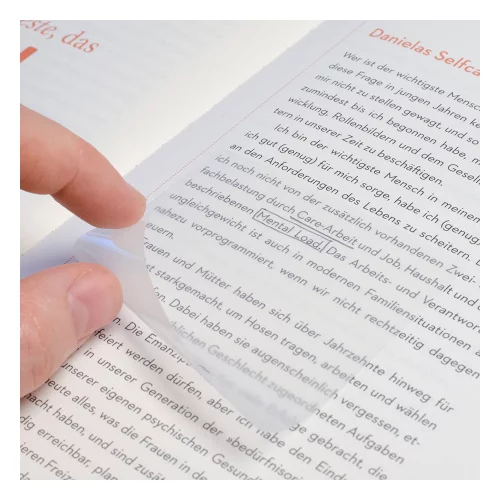 ste, das
Danielas Selfca
Wer ist der wichtigste Mensc
diese Frage in jungen Jahren ke
mir nicht zu stellen gewagt, und so
zumindest bis ich begonnen habe, m
wicklung, Rollenbildern und dem Gesell
tern in unserer Zeit zu beschäftigen.
Ich bin der wichtigste Mensch in meinen
ich gut (genug) für mich sorge, habe ich (genug)
an den Anforderungen des Lebens zu scheitern. D
ich noch nicht von der zusätzlich vorhandenen Zwei-
fachbelastung durch Care-Arbeit und Job, Haushalt und
beschriebenen Mental Load. Das Arbeits- und Verantwor
ungleichgewicht ist auch in modernen Familiensituationen a
nahezu vorprogrammiert, wenn wir nicht rechtzeitig dagegen
euern.
rauen und Mütter haben sich über Jahrzehnte hinweg für
st starkgemacht, um Hosen tragen, arbeiten und wählen
fen. Dabei haben sie augenscheinlich vergessen, et-
lichen Geschlecht zugeordneten Aufgaben
n. Die Emanzip
feiert werden dürfen, aber ich habe den Eind
in unserer Generation der »bedürfnisor
unserer eigenen psychischen Gesund
eute alles, was die Frauen in de
nacht haben, und sind zusät
dig erreichbar, plan
ieren Freiz